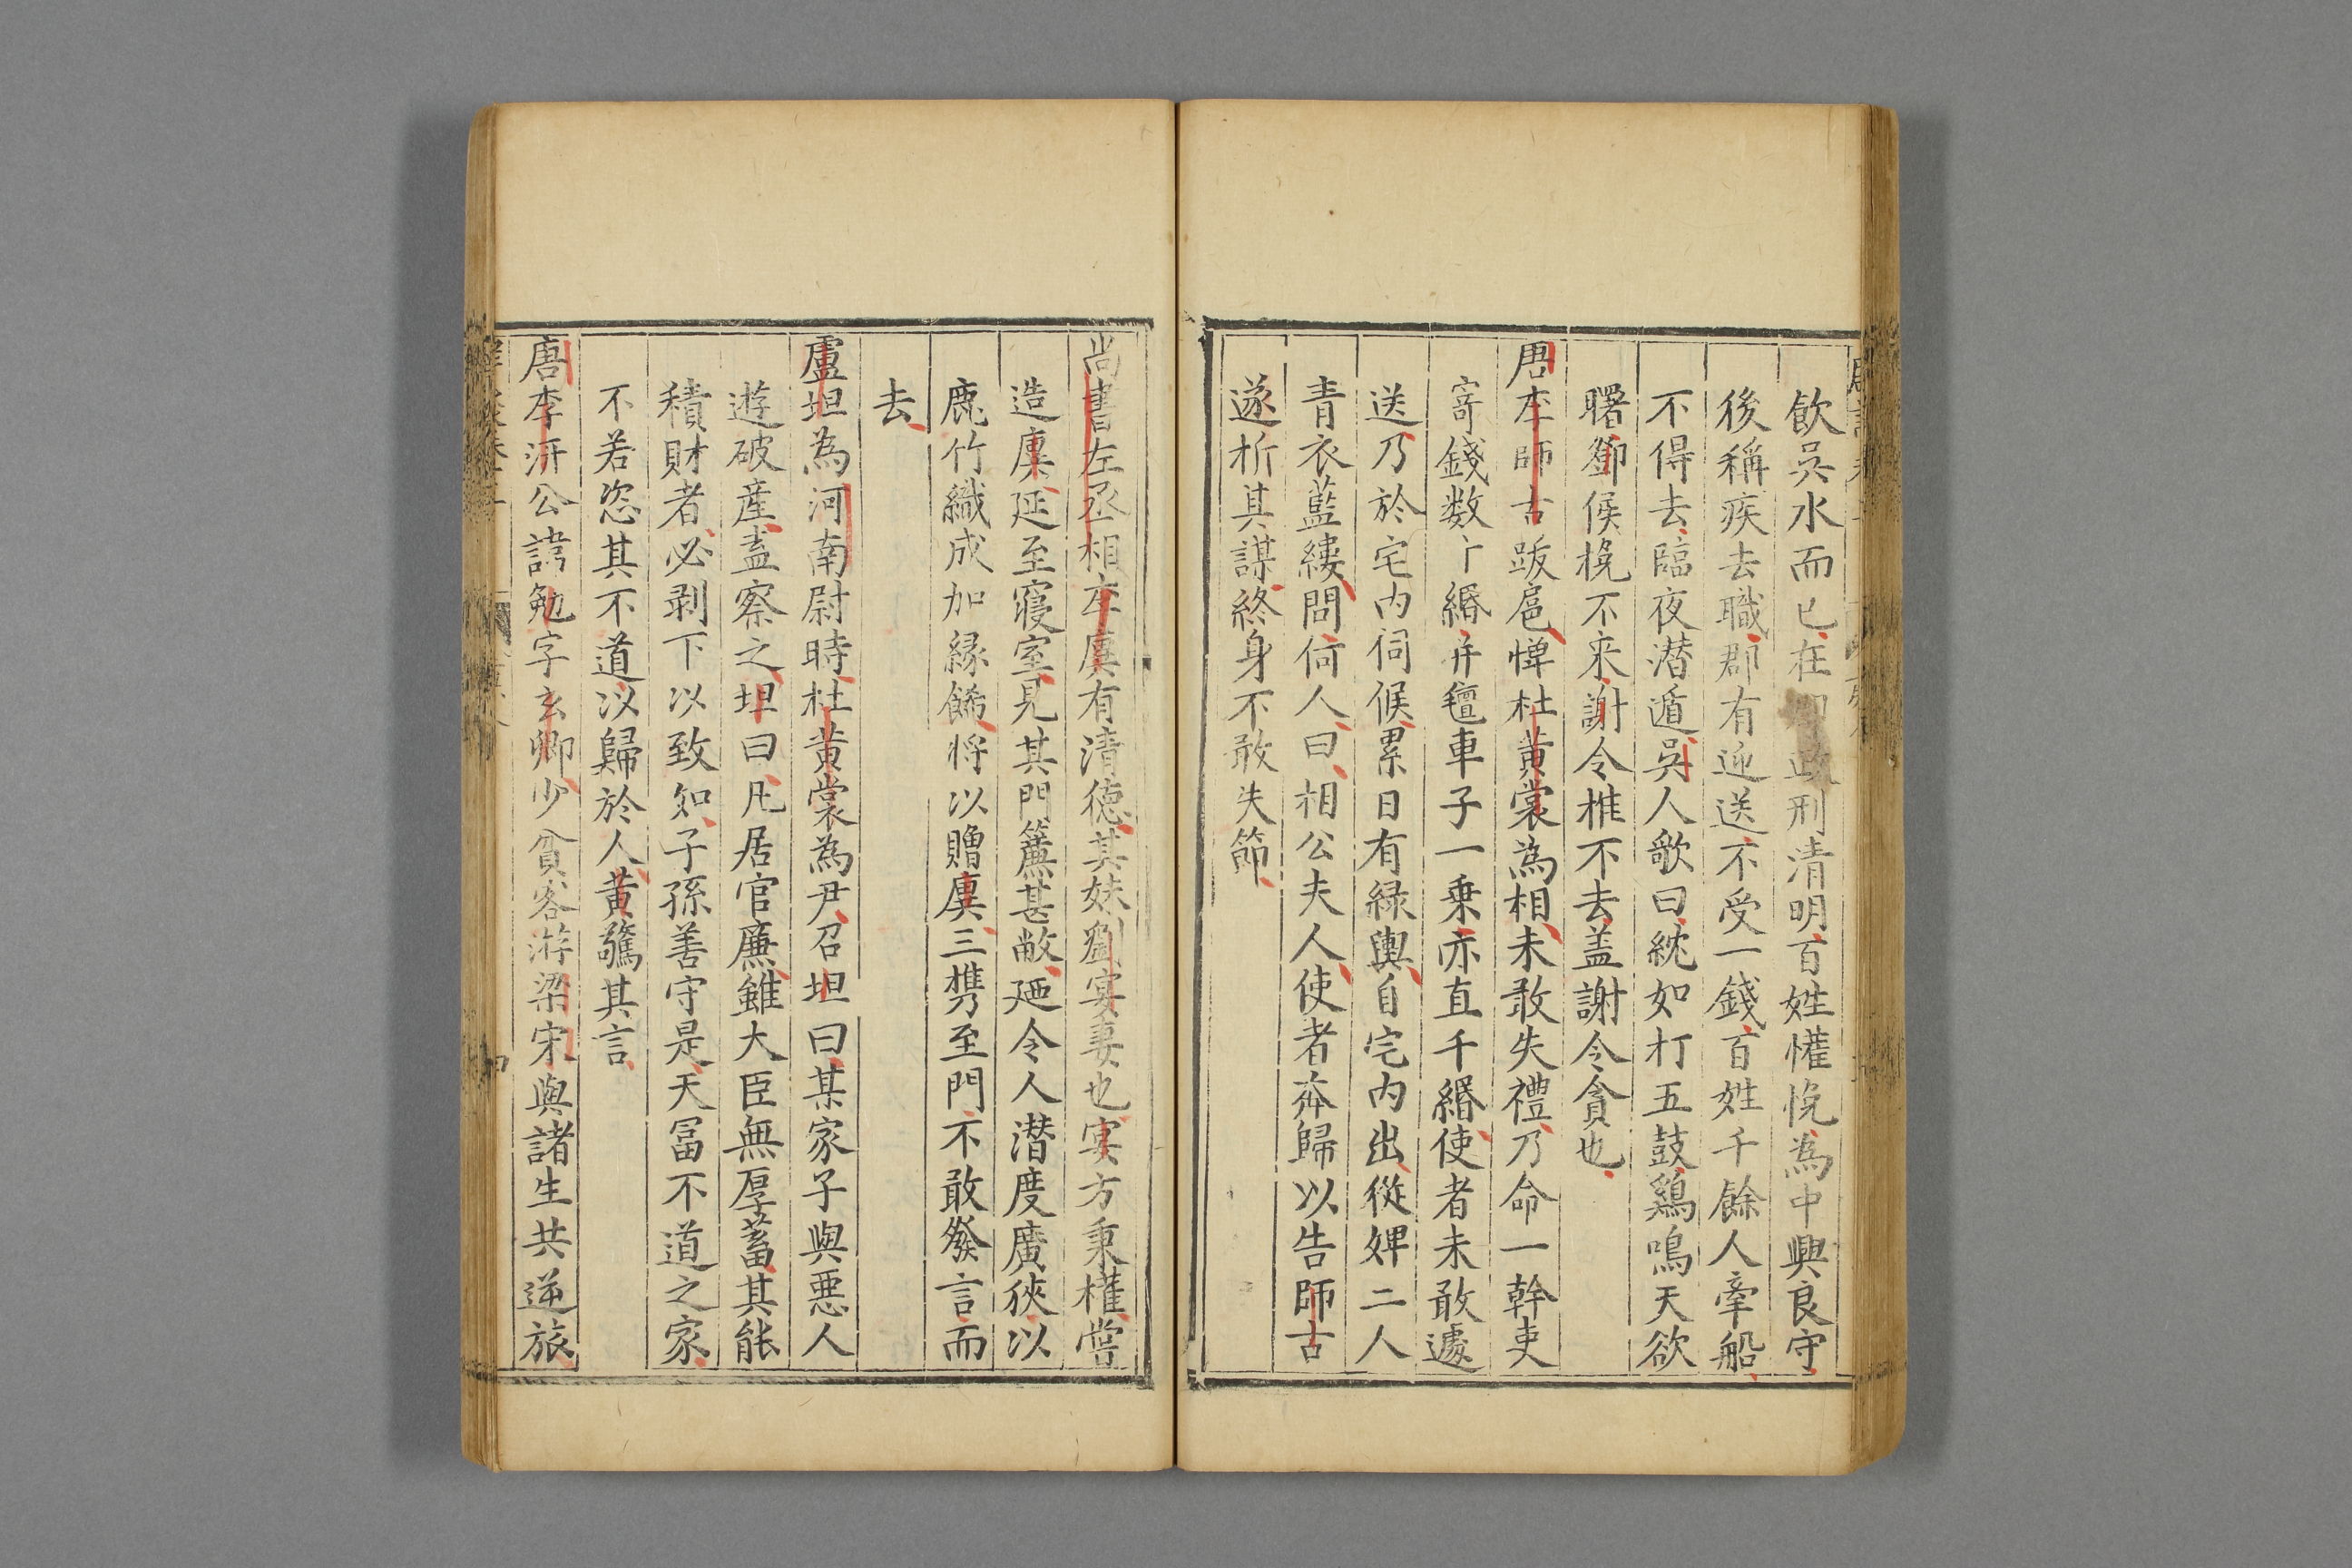 飲吳水而已在郡政刑清明百姓懽悅為中興良守
後稱疾去職郡有迎送不受一錢百姓千餘人牽船
不得去臨夜潜遁吳人歌曰紞如打五鼓鷄鳴天欲
曙鄧侯挽不來謝令推不去盖謝令貪也
唐李師古跋扈憚杜黄裳為相未敢失禮乃命一幹吏
寄錢数十緡并氊車子一乗亦直千緡使者未敢遽
送乃於宅内伺候累日有緑輿自宅内出從婢二人
青衣藍縷問何人曰相公夫人使者奔歸以告師古
遂折其謀終身不敢失節
尚書左丞相李廙有清德其妹劉宴妻也宴方秉權嘗
造廙延至寢室見其門簾甚敝廼令人潜度廣狹以
麁竹織成加緣餙将以贈廙三携至門不敢發言而
去
盧坦為河南尉時杜黄裳為尹召坦曰某家子與悪人
遊破産盍察之坦曰凡居官廉雖大臣無厚蓄其能
積財者必剥下以致如子孫善守是天冨不道之家
不若恣其不道以歸於人黄驚其言
唐李汧公諱勉字玄卿少貧客游梁宋與諸生共逆旅